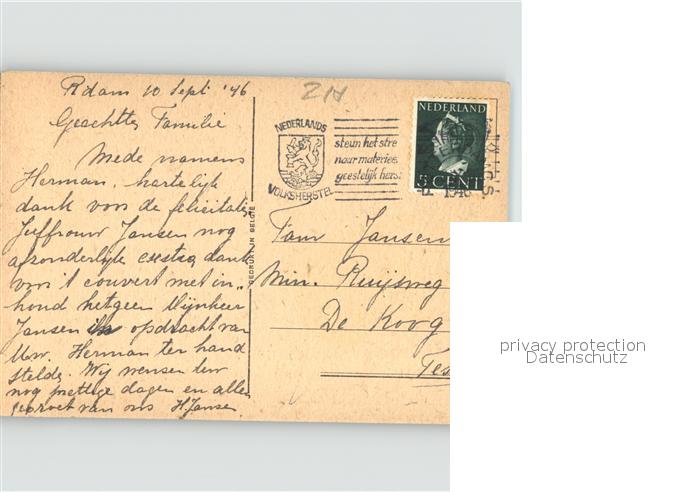 R'dam 10 Sept '46
Geachtte Familie
Mede namens
Herman, hartelijk
dank voor de felicitatie,
Juffrouw Jansen nog
afzonderlijk extra dank
voor 't couvert met in-
houd hetgeen Mijnheer
Jansen in opdracht van
Uw. Herman ter hand
stelde. Wij wensen Uw
nog prettige dagen en allen
gegroet van ons H. Jansen
GEDRUKT IN BELGIE
NEDERLANDS
VOLKSHERSTEL
steun het stre
naar materiee
geestelijk hers
NEDERLAND
5 CENT
1946
Fam Jansen
Min. Ruijsweg
De Koog
Tes
privacy protection
Datenschutz